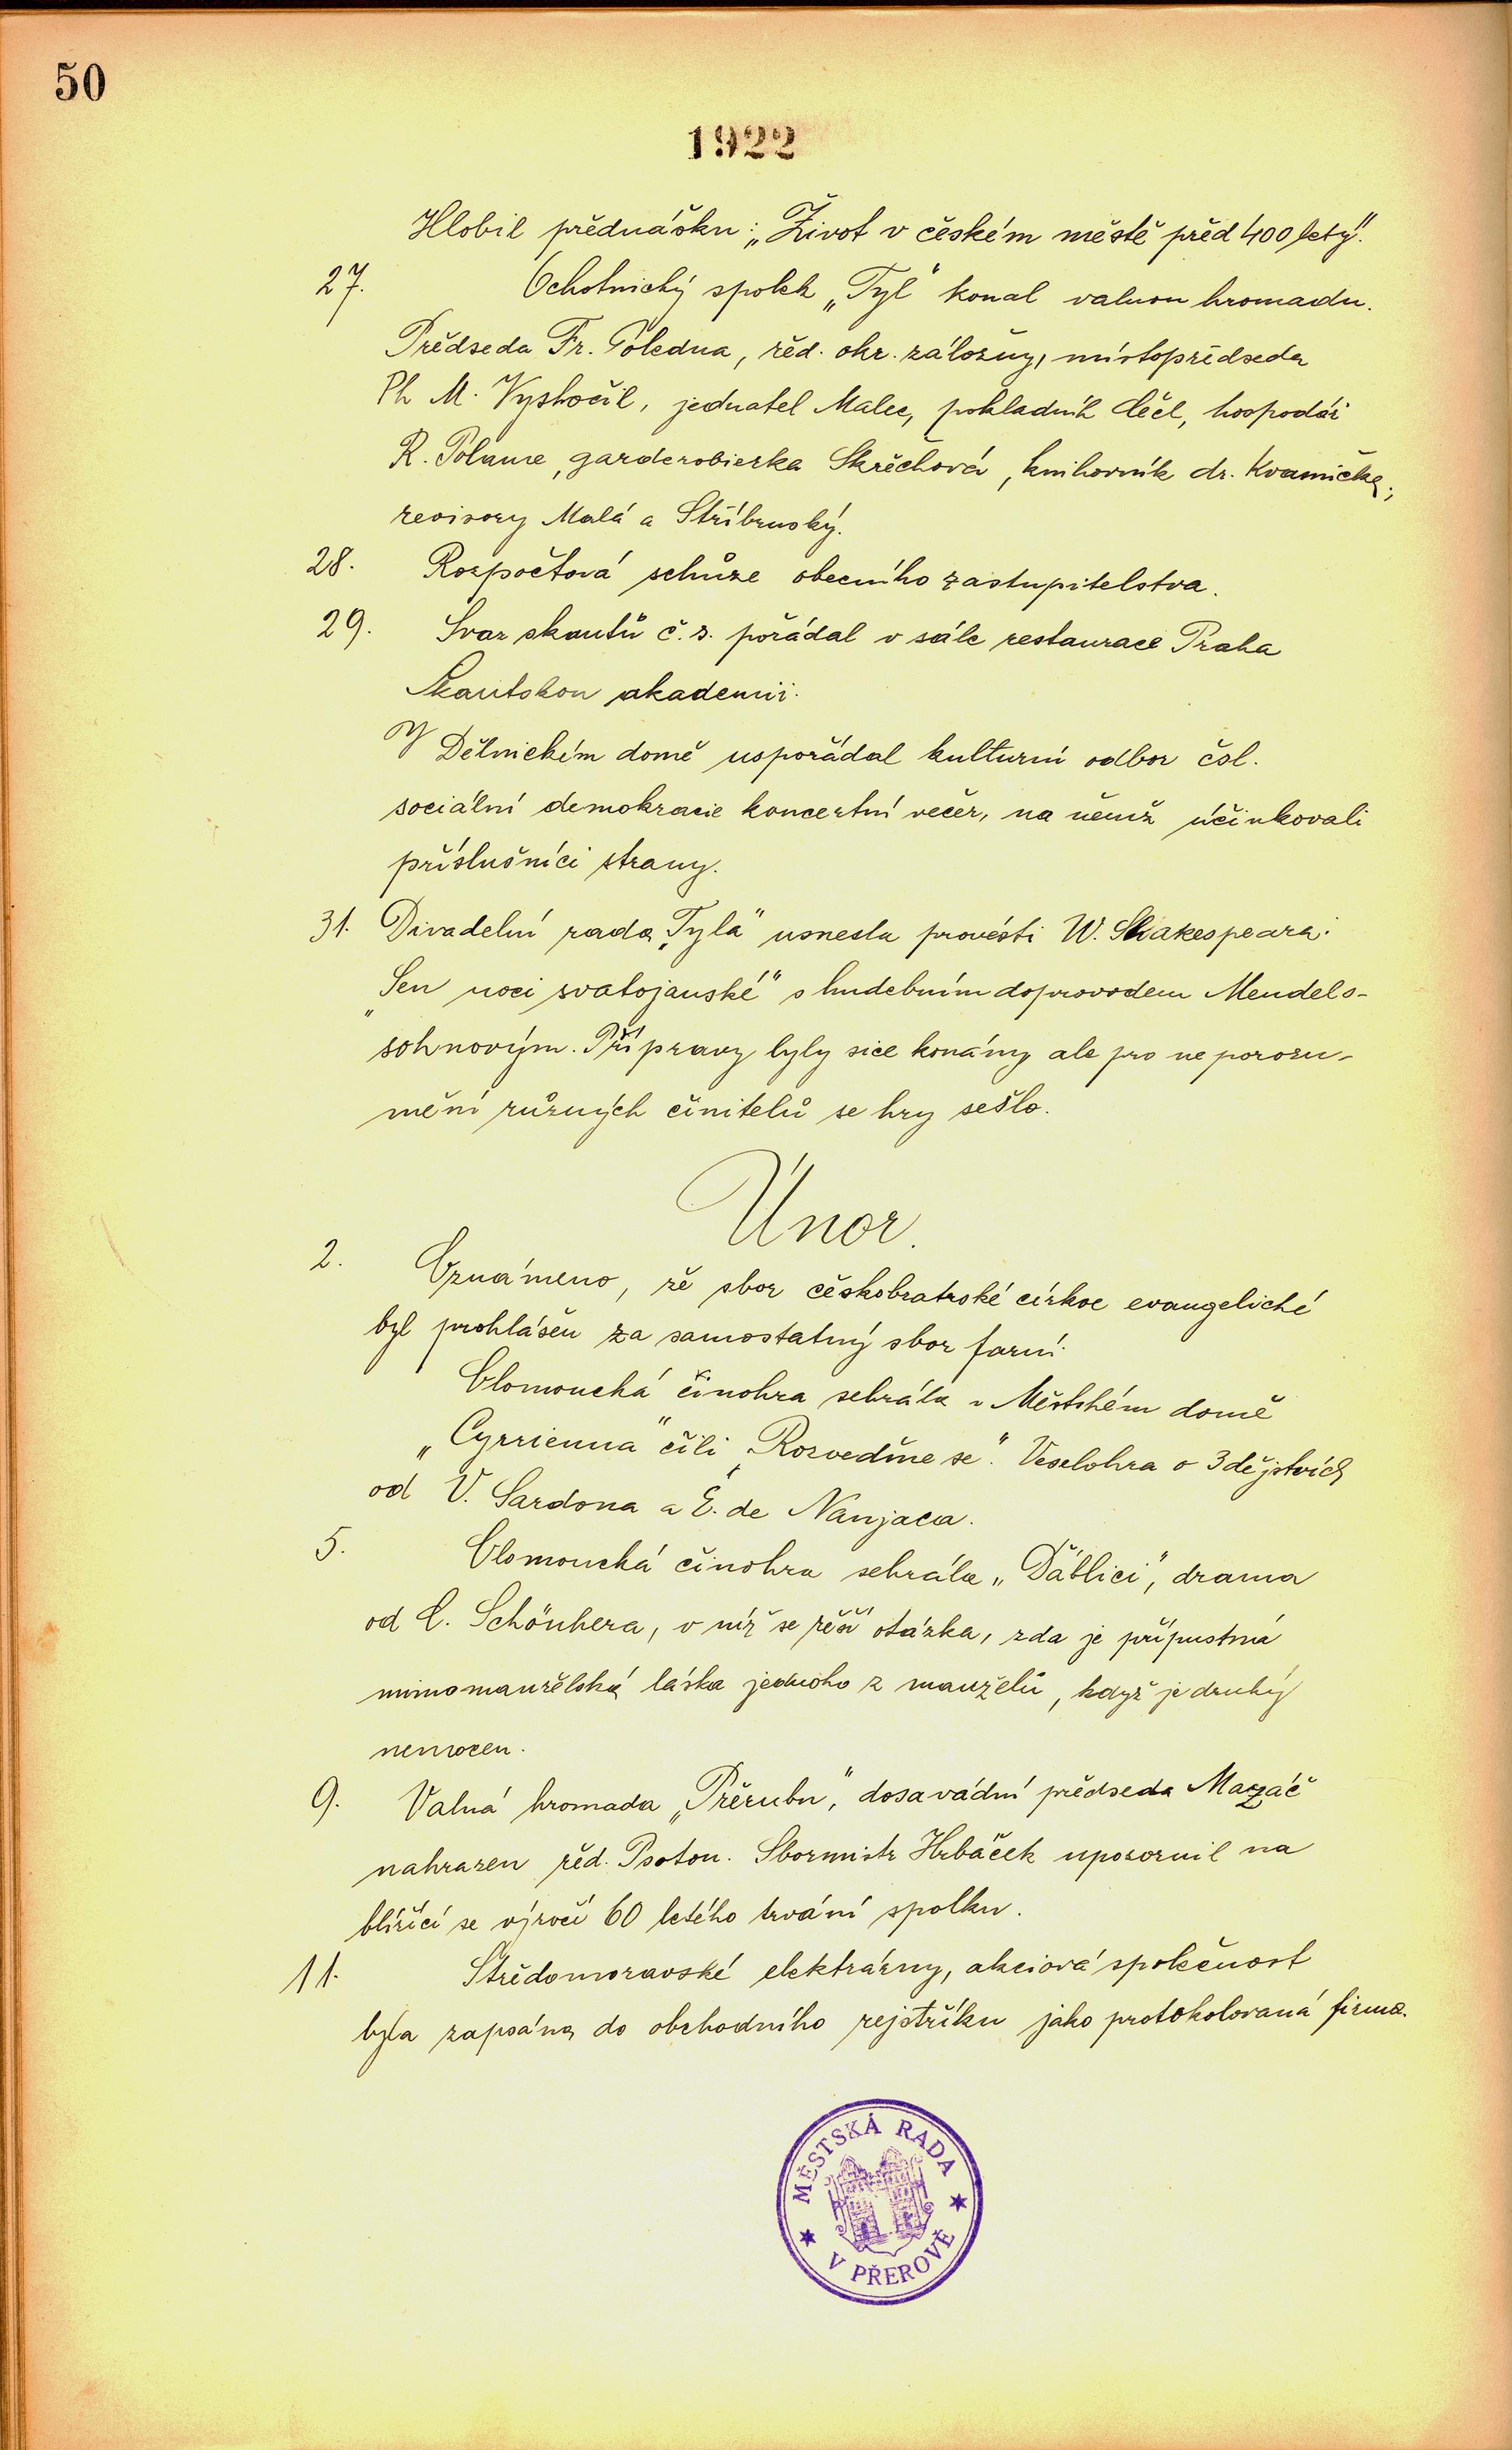 50
1922
Hlobil přednášku: „Život v českém městě před 400 lety".
27. Ochotnický spolek „Tyl" konal valnou hromadu.
Předseda Fr. Poledna, řed. okr. záložny, místopředseda
Ph M. Vyskočil, jednatel Malec, pokladník Céčl, hospodář
R. Polame, garderobierka Skřečková, knihovník dr. Kvasnička;
revisory Malá a Stříbrnský.
28. Rozpočtová schůze obecního zastupitelstva.
29. Svaz skautů č. s. pořádal v sále restaurace Praha
Skautskou akademii.
V Dělnickém domě uspořádal kulturní odbor čsl.
sociální demokracie koncertní večer, na němž účinkovali
příslušníci strany.
31. Divadelní rada „Tyla" usnesla provésti W. Shakespeara:
„Sen noci svatojanské" s hudebním doprovodem Mendels-
sohnovým. Přípravy byly sice konány ale pro neporozu-
mění různých činitelů se hry sešlo.
Únor.
2. Oznámeno, že sbor českobratrské církve evangelické
byl prohlášen za samostatný sbor farní.
Olomoucká činohra sehrála v Městském domě
„Cyrrienna" čili „Rozveďme se". Veselohra o 3 dějstvích
od V. Sardoua a E. de Nanjaca.
5. Olomoucká činohra sehrála „Ďáblici", drama
od C. Schönhera, v níž se řeší otázka, zda je přípustná
mimomanželská láska jednoho z manželů, když je druhý
nemocen.
9. Valná hromada „Přerubu", dosavádní předseda Mazáč
nahrazen řed. Psotou. Sbormistr Hrbáček upozornil na
blížící se výročí 60 letého trvání spolku.
11. Středomoravské elektrárny, akciová společnost
byla zapsána do obchodního rejstříku jako protokolovaná firma.
MĚSTSKÁ RADA
V PŘEROVĚ